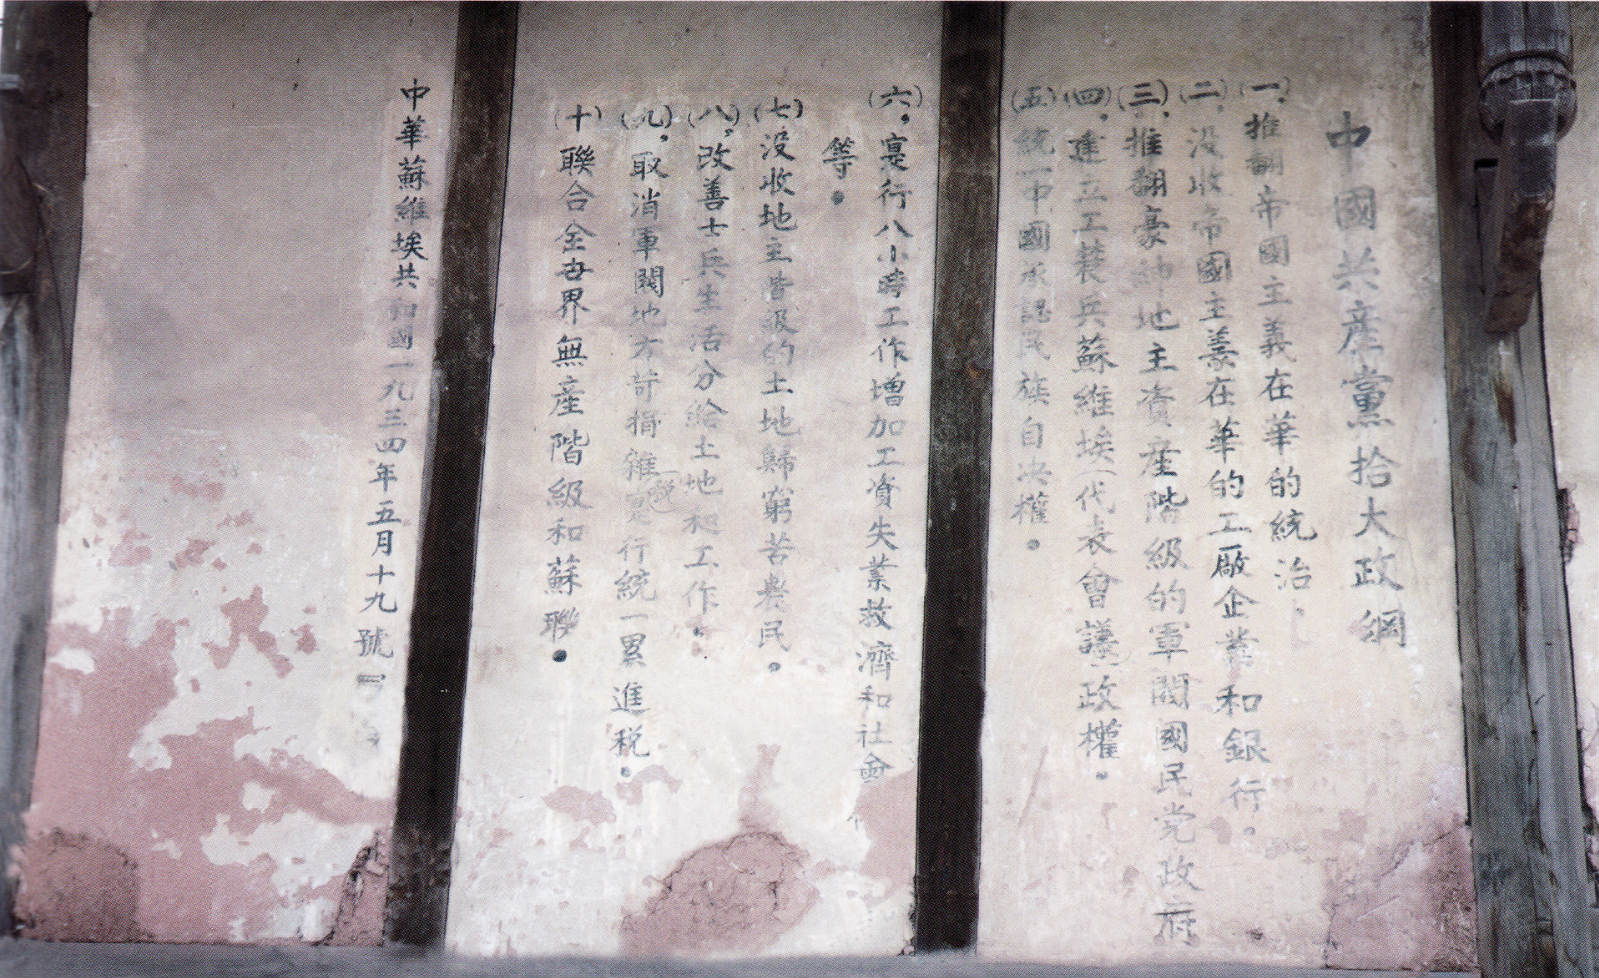 中國共産黨拾大政綱
(一)推翻帝國主義在華的統治
(二)没收帝國主義在華的工廠企業和銀行。
(三)推翻豪紳地主資産階級的軍閥國民党政府
(四)建立工農兵蘇維埃代表會議政權。
(五)統一中國承認民族自决權。
(六)寔行八小時工作增加工資失業救濟和社會
等。
(七)没收地主階級的土地歸窮苦農民。
(八)改善士兵生活分給土地和工作。
(九)取消軍閥地方苛捐雜税寔行統一累進税。
(十)聯合全世界無産階級和蘇聯。
中華蘇維埃共和國一九三四年五月十九號